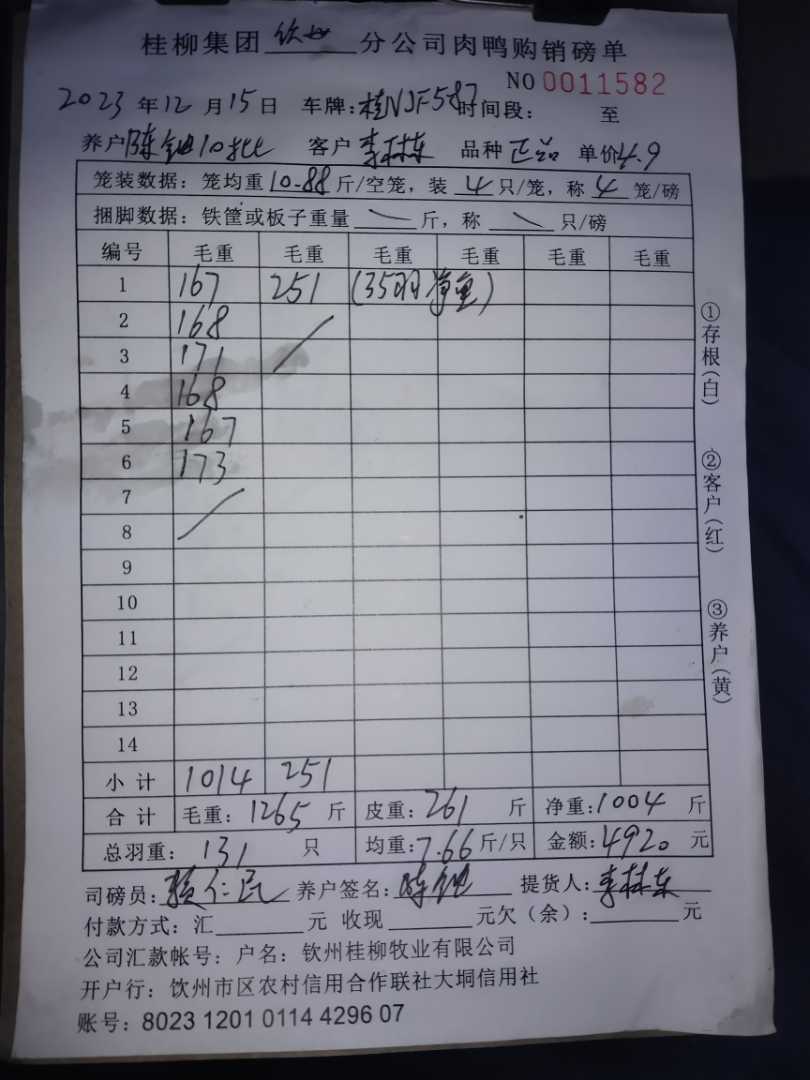 桂柳集团钦州分公司肉鸭购销磅单
NO 0011582
2023年12月15日 车牌:桂NJF587 时间段: 至
养户 陈 10批 客户 李林东 品种 正品 单价4.9
笼装数据: 笼均重10.88斤/空笼, 装4只/笼, 称4笼/磅
捆脚数据: 铁筐或板子重量 斤, 称 只/磅
编号 毛重 毛重 毛重 毛重 毛重 毛重
1 167 251 (35羽净重)
2 168
3 171
4 168
5 167
6 173
7
8
9
10
11
12
13
14
小计 1014 251
合计 毛重:1265斤 皮重:261斤 净重:1004斤
总羽重: 131 只 均重:7.66斤/只 金额:4920元
司磅员: 仁民 养户签名: 陈 提货人: 李林东
付款方式: 汇 元 收现 元欠(余): 元
公司汇款帐号: 户名: 钦州桂柳牧业有限公司
开户行: 钦州市区农村信用合作联社大垌信用社
账号: 8023 1201 0114 4296 07
①存根(白)
②客户(红)
③养户(黄)